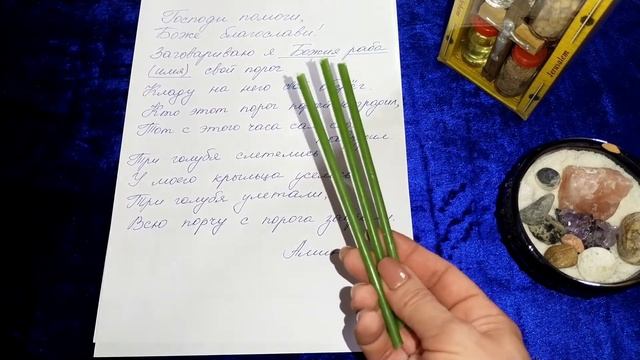 Господи помоги,
Боже благослави!
Заговариваю я Божия раба
(имя) свой порог
Кладу на него
Кто этот порог
Тот с этого часа
Три голубя слетелись
У моего крыльца
Три голубя улетали,
Всю порчу с порога
Jerusalem